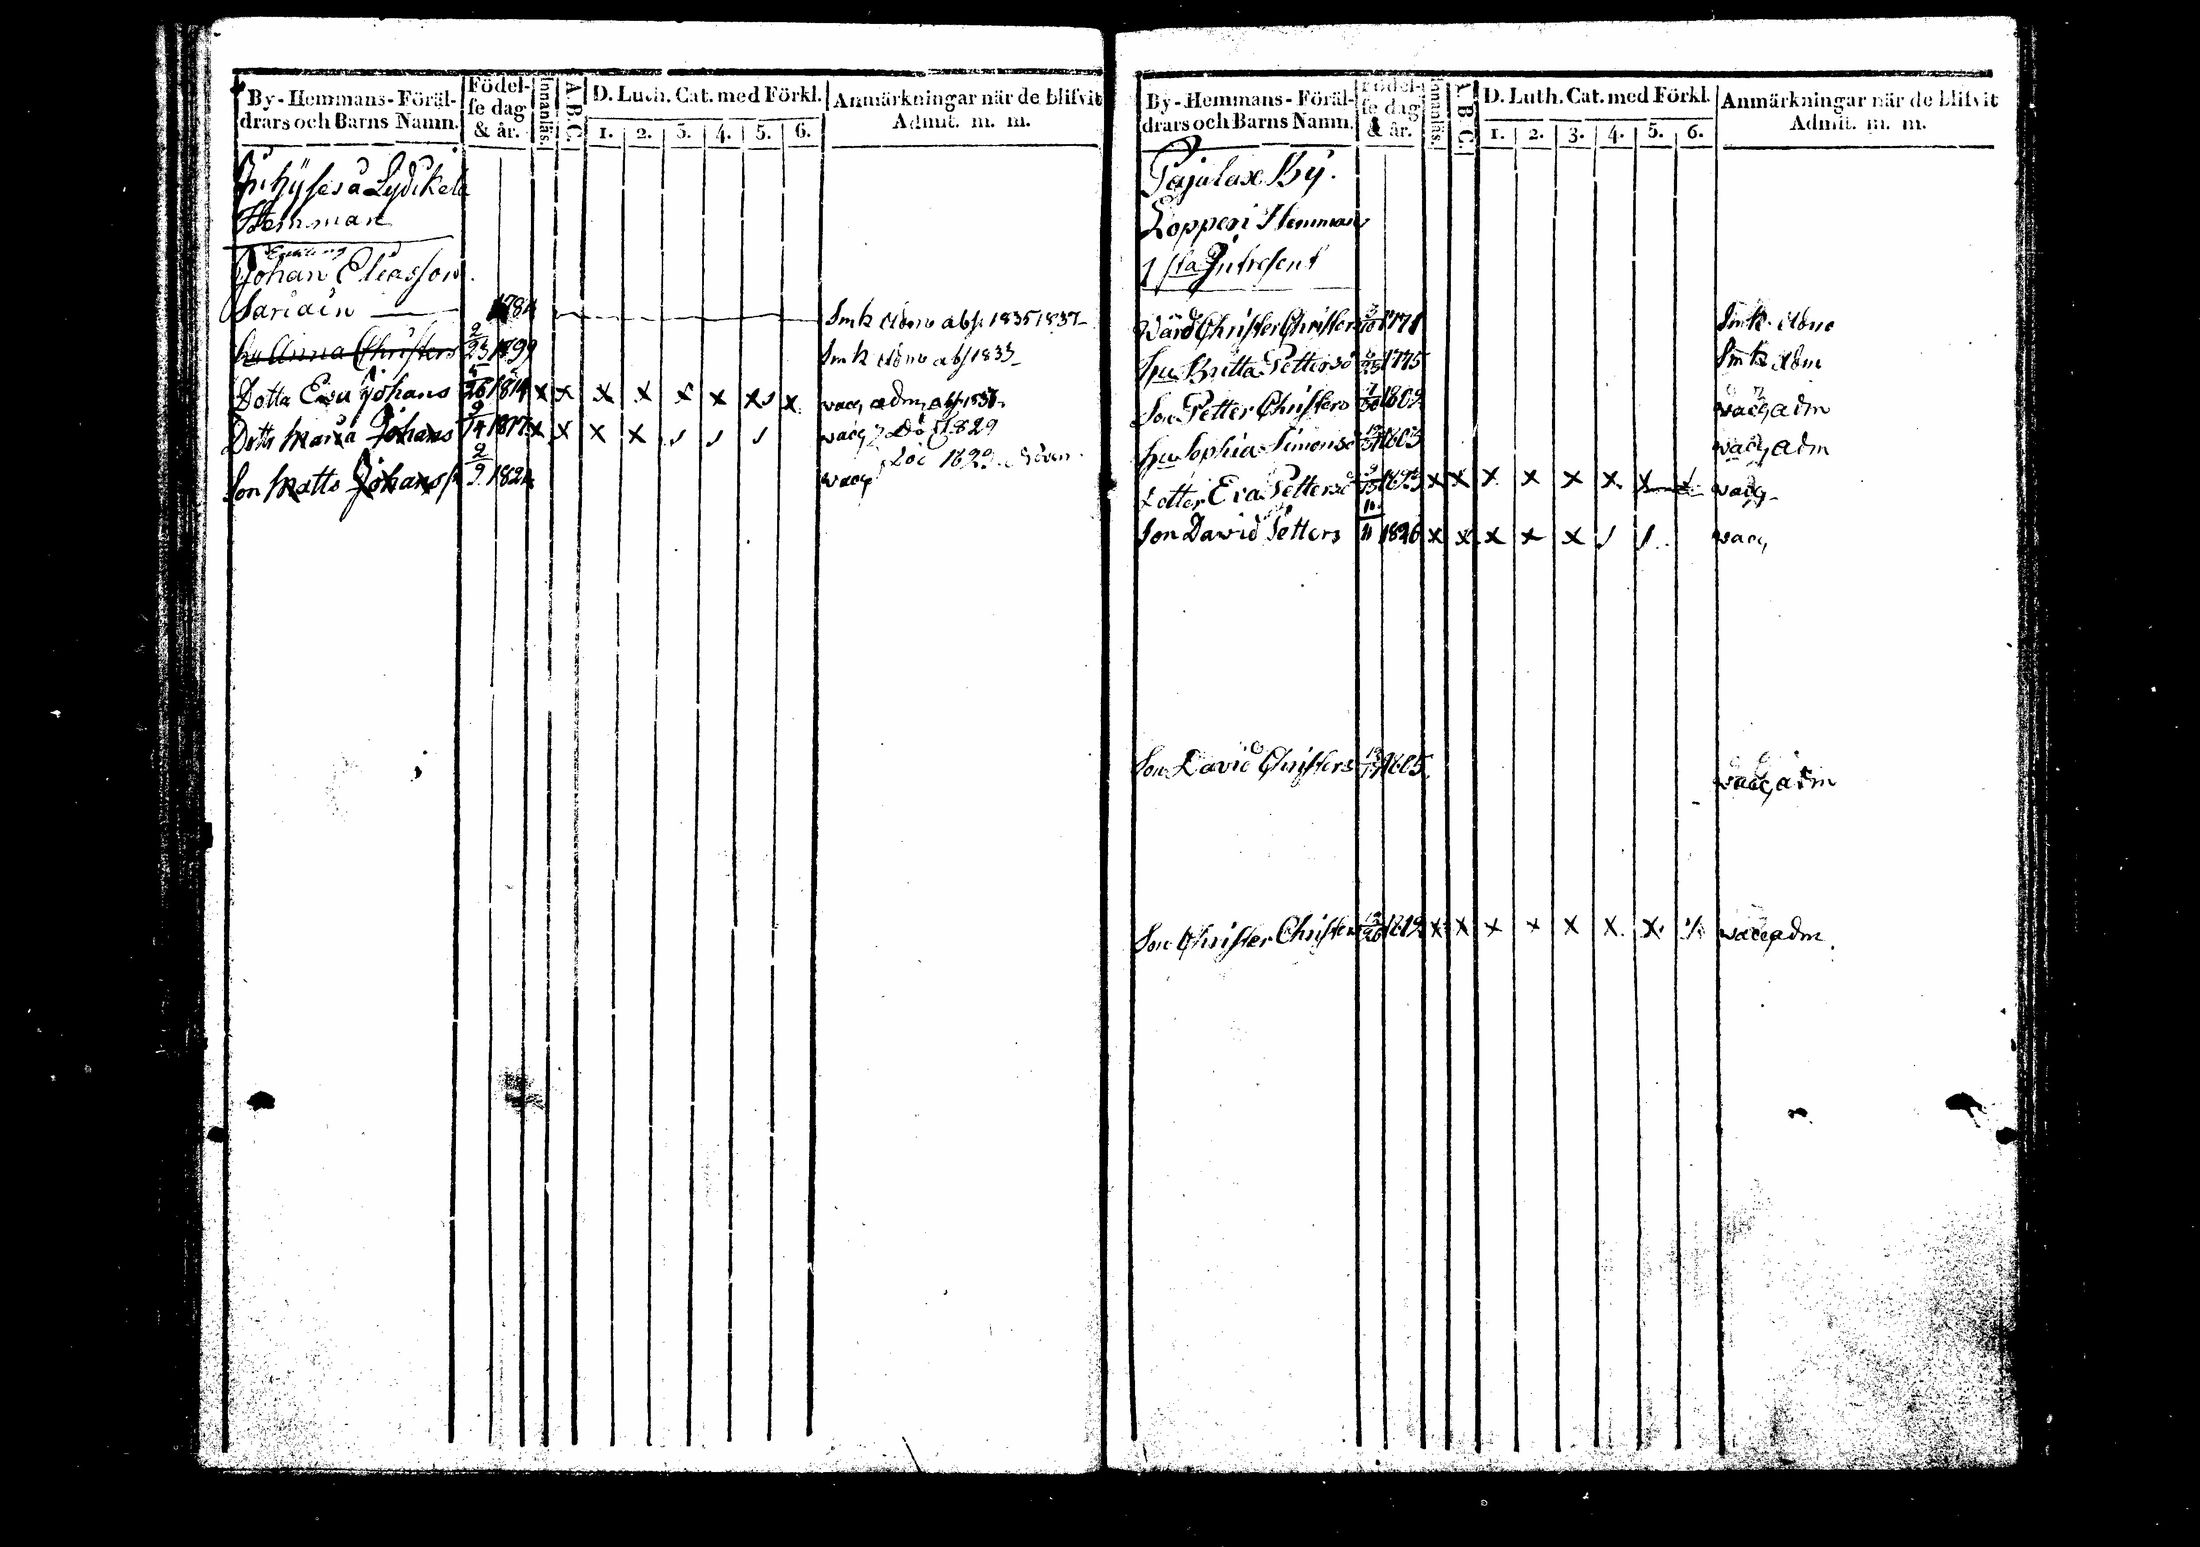 By-Hemmans-Föräl-
drars och Barns Namn.
Födel-
se dag
& år.
Innanläs.
A.B.C.
D. Luth. Cat. med Förkl.
1. 2. 3. 4. 5. 6.
Anmärkningar när de blifvit
Admit. m. m.
Inhyses å Lydikela
Hemman
Johan Eleasson
1784 Smk Idem abs. 1835, 1837
hu Anna Christers 2/23 1799 Smk Idem abs 1833
Dotta Eva Johans 5/26 1814 x x x x x x x x vacc, adm, abs 1836
Dottr Maria Johans 9/14 1817 x x x x vacc, Dö 1829
Son Matts Johanss 2/9 1824 vacc Död 1829
By-Hemmans-Föräl-
drars och Barns Namn.
Födel-
se dag
& år.
Innanläs.
A.B.C.
D. Luth. Cat. med Förkl.
1. 2. 3. 4. 5. 6.
Anmärkningar när de blifvit
Admit. m. m.
Pajulax By.
Lopperi Hemman
1sta Intresent
Wärd Christer Christers 1771 Smk. Idem
hu Britta Petters 1775 Smk Idm
Son Petter Christers 1802 vacc, adm
hu Sophia Simons 1803 vacc, adm
Dotter Eva Petters x x x x x x x vacc
Son Dawid Petters 11/11 1826 x x x x x vacc
Son David Christers 1805 vacc, adm
Son Christer Christers 1812 x x x x x x x vacc adm.